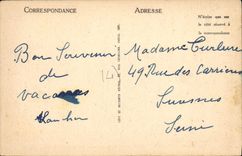 CORRESPONDANCE
ADRESSE
N'écrire que sur
le côté réservé à
la correspondance
Bon Souvenir
de
vacances
Madame Turlure
49 Rue des Carrières
Suresnes
Seine